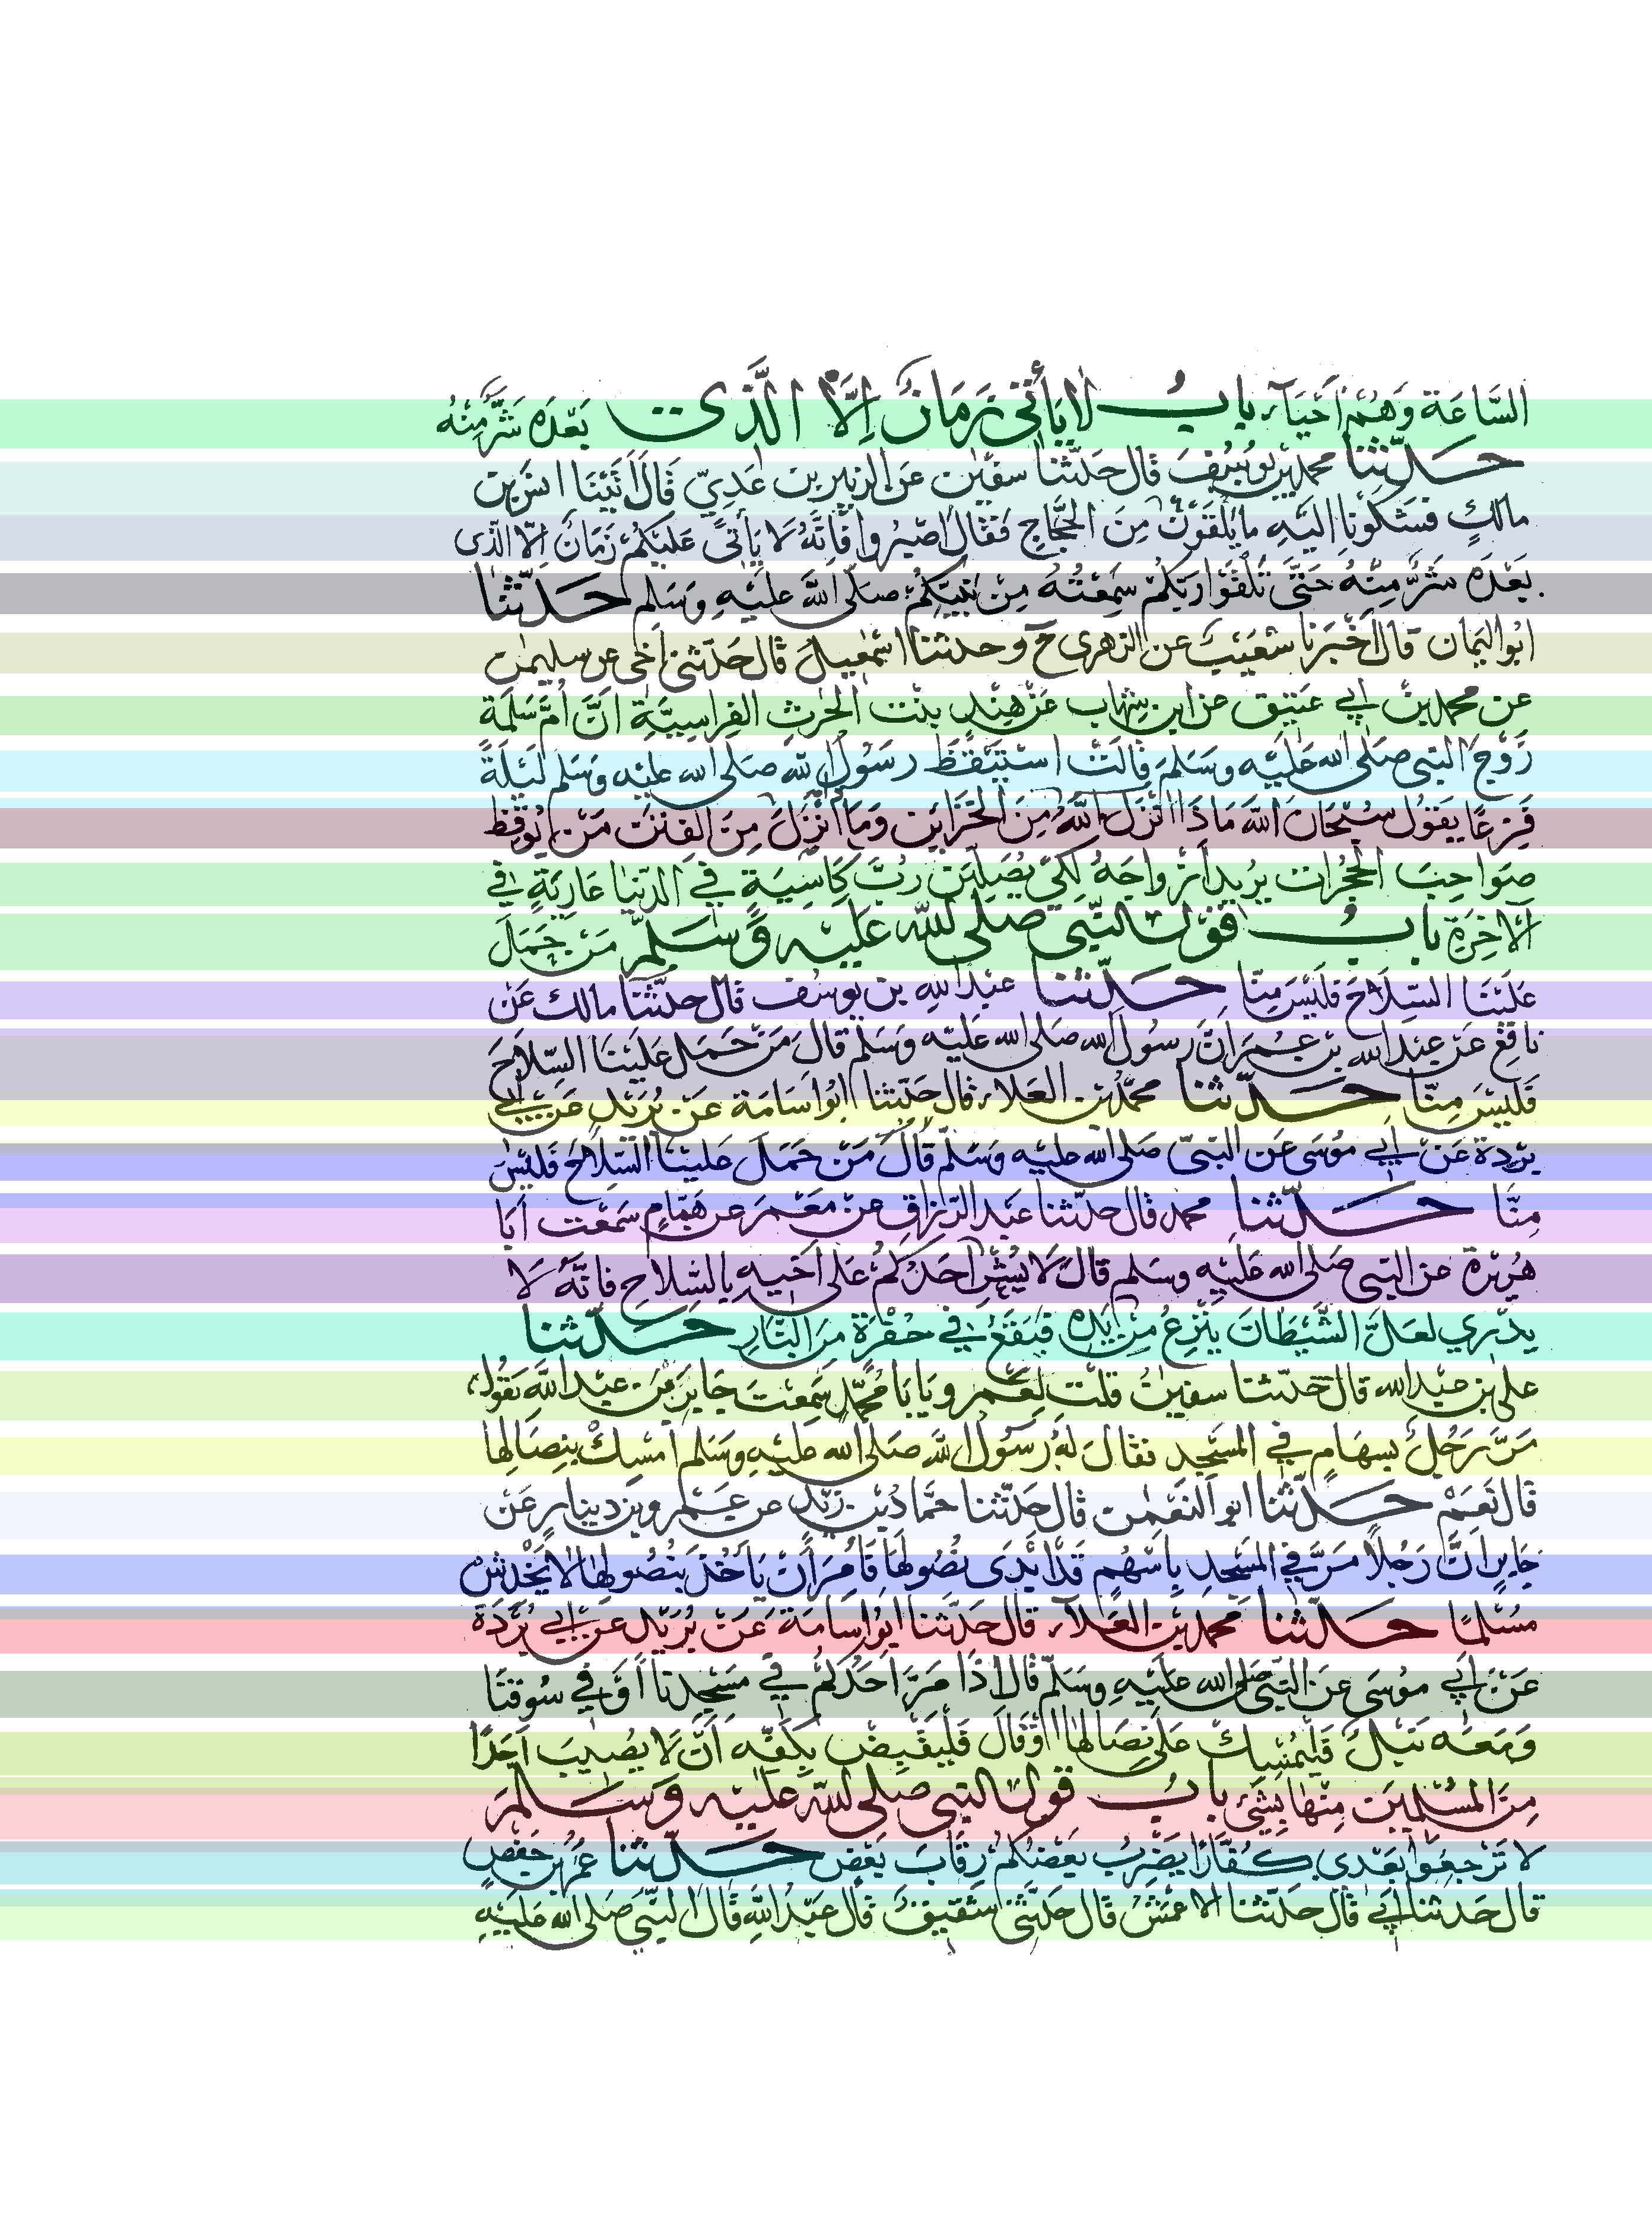 السَّاعَة وَهُمْ اَحْيَآء باب لَا يَأتي زَمَانٌ اِلَّا الَّذي بَعْدَه شَرٌّ مِنْهُ
حَدَّثَنَا محمد بن يُوسُفَ قال حَدَّثنا سفيٰن عَن الزبير بن عَدِيّ قَالَ اَتَيْنَا انس بن
مالكٍ فشكونا اِليَهِ ما يَلْقَوْنَ مِنَ الحَجَّاج فَقَال اصْبِرُوا فَاِنَّهُ لَا يَأتي عَلَيْكُمْ زَمَانٌ اِلّا الّذى
بَعْدَه شَرٌّ مِنْهُ حَتَّى تَلْقَوْا رَبَّكُمْ سَمِعْتُهُ مِنْ نَبِيِّكُمْ صَلّى اللهُ عَلَيْهِ وَسَلم حَدَّثنا
ابُو اليَمان قال اَخْبَرَنا شُعَيْبٌ عن الزهرى ح وحدثنا اسمٰعيل قال حَدّثنى اَخى عن سليمٰن
عن محمد بن اَبي عَتيق عن ابن شِهاب عَنْ هِنْدٍ بنت الحٰرث الفِرَاسِيَّةِ اَنَّ اُمَّ سَلَمَةَ
زَوْجَ النبى صَلى الله عَلَيْه وسَلمَ قالَتْ اسْتَيْقَظَ رسُول الله صَلى الله عليه وَسَلم لَيْلَةً
فَزِعًا يَقُول سُبْحَانَ اللهِ مَاذَا اَنْزَلَ اللهُ مِنَ الخَزَايِن وَمَا اُنْزِلَ مِنَ الفِتَن مَنْ يُوقِظ
صَوَاحِبَ الحُجُرات يُريد اَزْواجَهُ لِكَيْ يُصَلِّيْنَ رُبَّ كَاسِيَةٍ فِي الدّنيا عَارِيَةٍ في
الآخِرَة بابُ قَوْل النّبي صَلى الله عَلَيْه وَسَلمَ مَنْ حَمَلَ
عَلَيْنَا السِّلاحَ فَلَيْسَ مِنّا حَدّثنا عَبْد الله بن يُوسُف قال حدَّثَنا مالك عَنْ
نافِع عَنْ عبد الله بن عُمَرَ اَنَّ رسُول الله صَلى الله عَليه وَسَلم قالَ مَنْ حَمَل عَلَيْنَا السِّلاحَ
فَلَيْسَ مِنّا حَدّثنا محمّد بن العَلاء قال حَدّثنا ابُو اسَامَة عَنْ بُرَيْد عَنْ اَبي
بُرْدة عَنْ اَبي مُوسَى عَن النّبيّ صَلى الله عليه وسَلّم قالَ مَنْ حَمَل علينا السّلاحَ فَلَيْسَ
مِنَّا حَدَّثنا محمد قال حدّثنا عَبد الرّزاق عن مَعْمَر عن همّامٍ سَمِعْت اَبَا
هُرَيْرة عن النبى صَلى الله عَليْه وسَلم قالَ لا يُشيرُ اَحَدُكمْ عَلى اَخيه بالسِّلاح فانّه لَا
يدْري لعَلَّ الشَّيْطَانَ يَنْزعُ مِن يَده فيَقَعُ في حُفْرَة مِنَ النَّار حَدَّثنا
على بن عبد الله قال حَدّثنا سفيٰنُ قلْت لِعَمْرو يَابَا مُحَمّد سَمِعْتَ جَابِرَ بْنَ عبد اللهِ يَقُول
مَرَّ رَجُلٌ بِسِهَامٍ في المسَجد فقَالَ لَهُ رَسُول اللهِ صَلى الله عليْهِ وسَلم اَمْسِكْ بِنِصَالِها
قال نَعَمْ حَدّثنا ابو النعْمٰن قال حَدّثنا حَمّادُ بْن زَيْد عن عَمْرو بن دِينارٍ عَنْ
جَابِرٍ انَّ رَجُلًا مَرَّ في المسْجد بِاَسْهُمٍ قَد اَبْدَى نُصُولَهَا فَاُمِرَ اَنْ يَأخُذَ بِنُصُولِها لا يَخْدِشُ
مُسْلِمًا حَدّثنا محمد بن العَلاَء قال حَدّثنا ابُو اسامَة عَنْ بُرَيْد عن اَبي بُرْدَة
عَنْ اَبي مُوسَى عَن النّبى صَلى الله عليْهِ وسَلّم قال اِذَا مَرَّ اَحَدُكُمْ في مَسْجِدِنا اَوْ في سُوقِنَا
وَمَعَه نَبْلٌ فَلْيُمْسِكْ عَلى نِصَالِهَا اَوْ قَالَ فَلْيَقْبِضْ بِكَفِّه اَنْ لَا يُصِيبَ اَحَدًا
مِنَ المسْلِمِيْنَ مِنْها بِشَيْءٍ باب قول النبى صَلى الله عليْه وسَلم
لا تَرْجِعُوا بَعْدى كُفَّارًا يَضْرِبُ بَعْضُكُمْ رِقَابَ بَعْضٍ حَدّثنا عُمَرُ بن حَفْصٍ
قال حَدثنا اَبي قال حَدّثنا الاَعْمَشُ قال حَدّثني شَقِيقٌ قال عَبْد اللهِ قالَ النّبيّ صَلى الله عَليْهِ